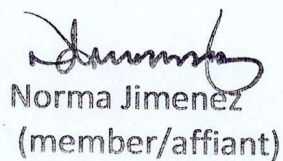 Norma Jimenez
(member/affiant)